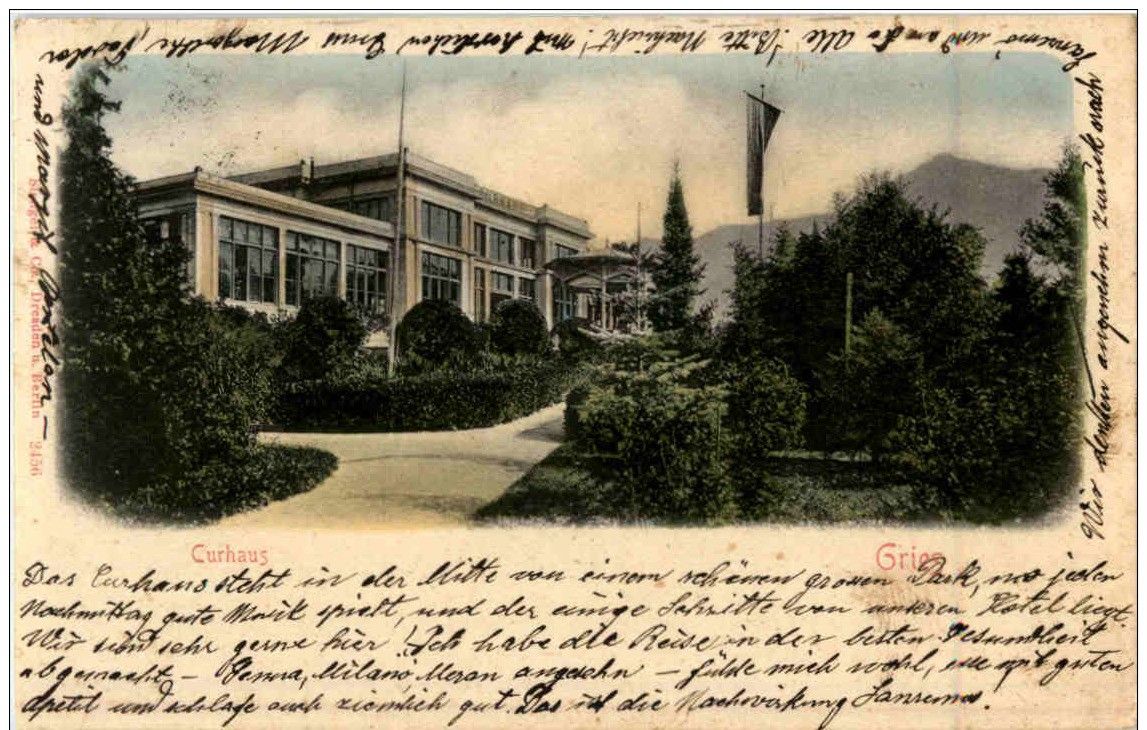 Curhaus
Gries
Das Curhaus steht in der Mitte von einem schönen grossen Park, wo jeden
Nachmittag gute Musik spielt, und der einige Schritte von unseren Hotel liegt.
Wir sind sehr gerne hier! Ich habe die Reise in der besten Gesundheit
abgemacht – Genua, Milano, Meran angesehn – fühle mich wohl, esse mit guten
Apetit und schlafe auch ziemlich gut. Das ist die Nachwirkung Sanremos!
Wir denken angenehm zurück nach
Sanremo und an Sie Alle! Bitte Nachricht! mit herzlichen Gruss Margarethe
und
Stengel & Co., Dresden u. Berlin 2456